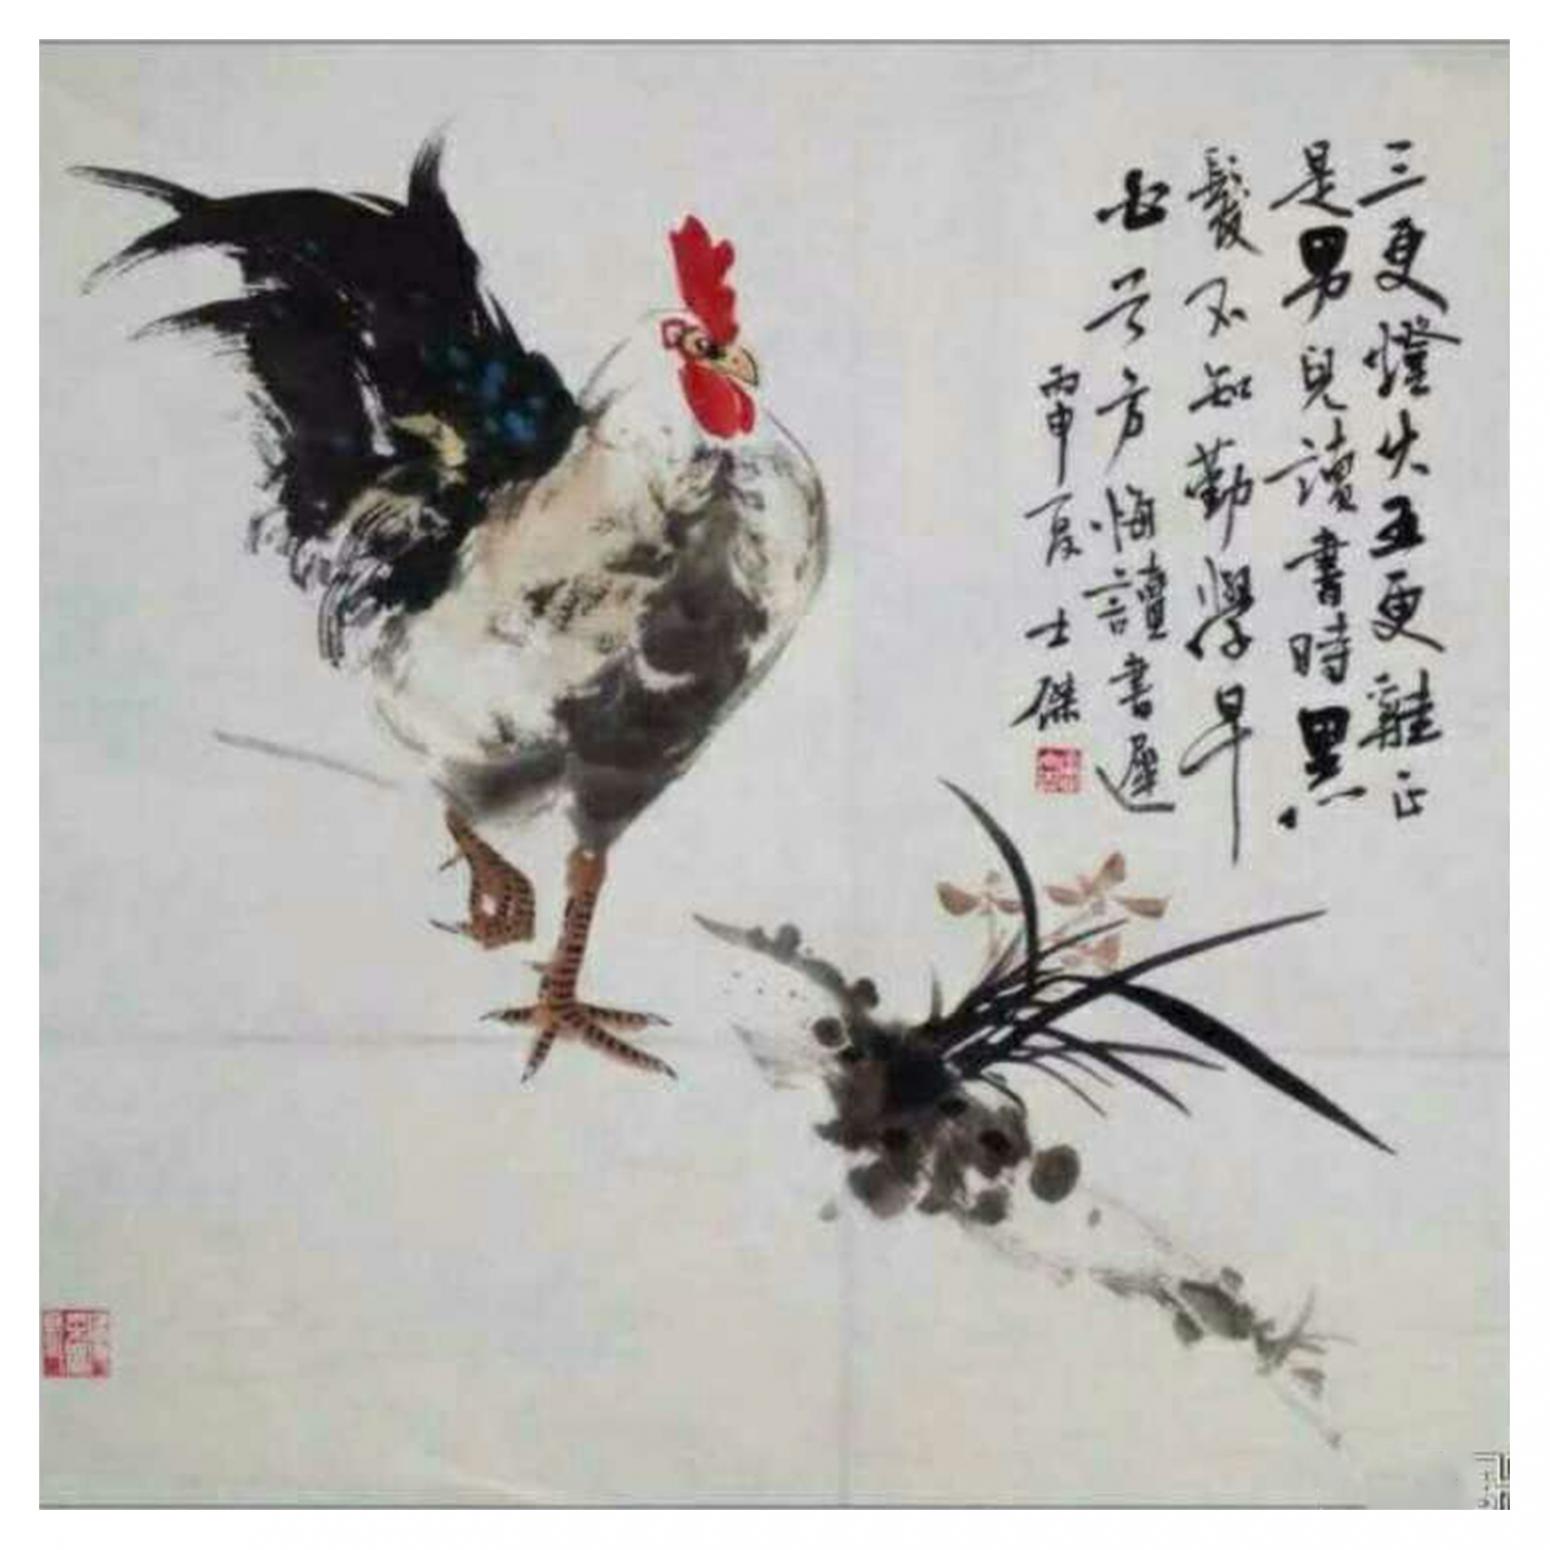 三更燈火五更雞正
是男兒讀書時黑
髮不知勤學早
白首方悔讀書遲
丙申夏 士傑